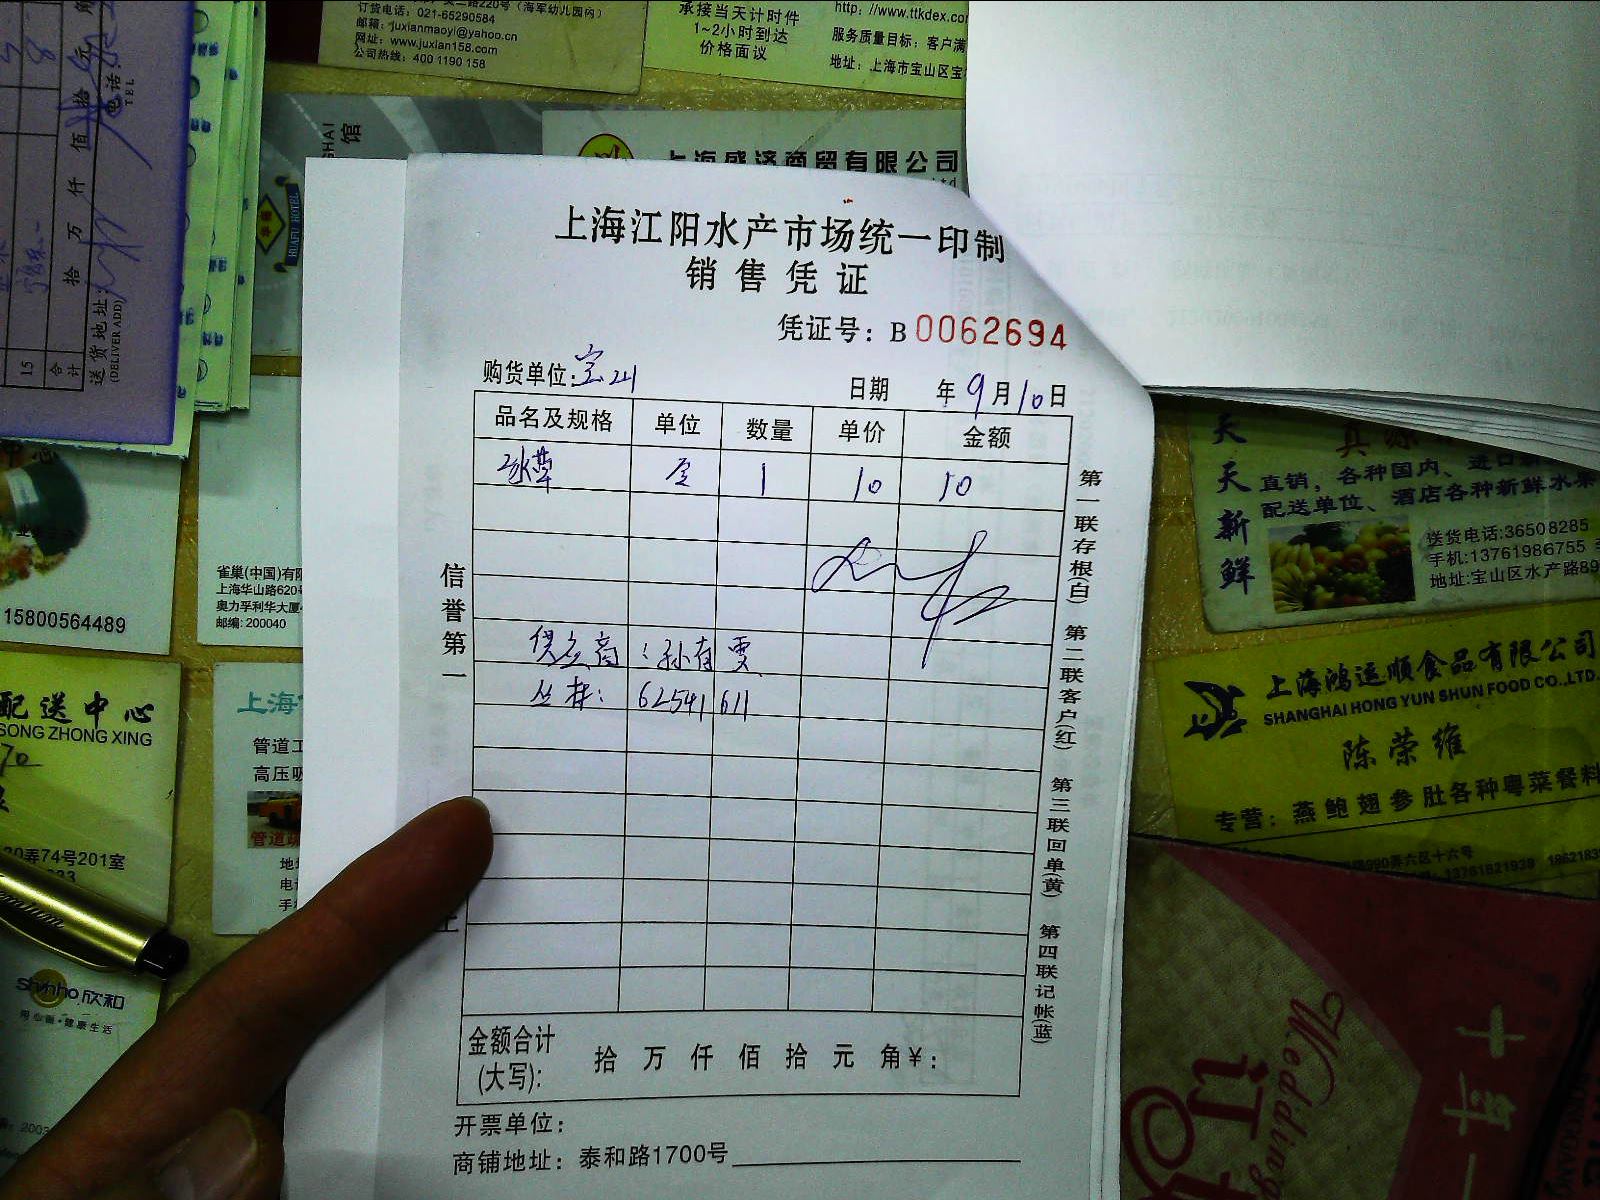 订货电话：021-65290584
邮箱：juxianmaoyi@yahoo.cn
网址：www.juxian158.com
公司热线：400 1190 158
承接当天计时件
1~2小时到达
价格面议
http://www.ttkdex.co
服务质量目标：客户满
地址：上海市宝山区宝
上海盛济商贸有限公司
HUAFU HOTEL
馆
合计
15
送货地址：
(DELIVER ADD)
拾 万 仟 佰 拾 元 角
电话
TEL
上海江阳水产市场统一印制
销售凭证
凭证号：B 0062694
购货单位：宝山
日期 年 9 月 10 日
品名及规格 单位 数量 单价 金额
1 10 10
供应商：孙有雯
丛林：62541611
信誉第一
第一联存根(白) 第二联客户(红) 第三联回单(黄) 第四联记帐(蓝)
金额合计
(大写)： 拾 万 仟 佰 拾 元 角 ¥：
开票单位：
商铺地址：泰和路1700号
天天新鲜
直销，各种国内、进口
配送单位、酒店各种新鲜水果
送货电话:36508285
手机:13761986755
地址:宝山区水产路89
上海鸿运顺食品有限公司
SHANGHAI HONG YUN SHUN FOOD CO.,LTD.
陈荣维
专营：燕鲍翅参肚各种粤菜餐料
990弄六区十六号
13761821938
Wedding
十年一
15800564489
雀巢(中国)有限
上海华山路620号
奥力孚利华大厦
邮编: 200040
配送中心
SONG ZHONG XING
30弄74号201室
上海
管道工
高压吸
管道疏
地
电
手
shinho 欣和
用心做·健康生活